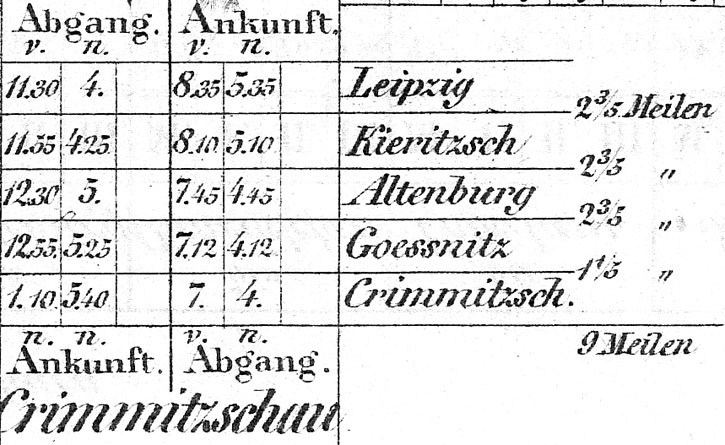 Abgang. Ankunft.
v. n. v. n.
11.30 4. 8.35 5.35 Leipzig
2 3/5 Meilen
11.55 4.25 8.10 5.10 Kieritzsch
2 3/5 "
12.30 5. 7.45 4.45 Altenburg
2 3/5 "
12.55. 5.25 7.12 4.12 Goessnitz
1 1/5 "
1.10 5.40 7. 4. Crimmitzsch.
n. n. v. n.
9 Meilen
Ankunft. Abgang.
Crimmitzschau